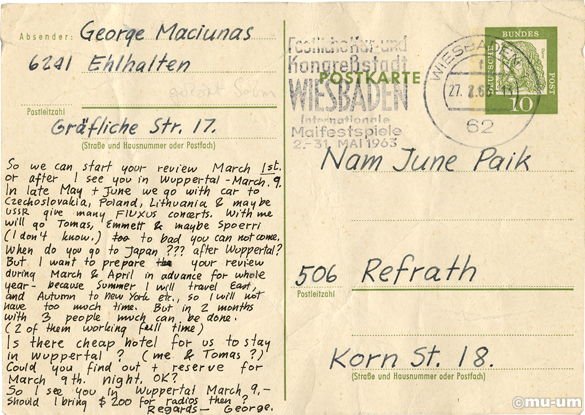 Absender: George Maciunas
6241 Ehlhalten
Postleitzahl
Gräfliche Str. 17.
(Straße und Hausnummer oder Postfach)
So we can start your review March 1st.
or after I see you in Wuppertal - March. 9.
In late May + June we go with car to
Czechoslovakia, Poland, Lithuania & maybe
USSR give many FLUXUS concerts. With me
will go Tomas, Emmett & maybe Spoerri
(I don't know.) to bad you can not come.
When do you go to Japan ??? after Wuppertal?
But I want to prepare your review
during March & April in advance for whole
year - because Summer I will travel East,
and Autumn to New York etc., so I will not
have too much time. But in 2 months
with 3 people much can be done.
(2 of them working full time)
Is there cheap hotel for us to stay
in Wuppertal ? (me & Tomas ?)
Could you find out + reserve for
March 9th. night, OK?
So I see you in Wuppertal March 9, -
Should I bring $ 200 for radios then ?
Regards - George.
Festliche Kur- und
Kongreßstadt
WIESBADEN
Internationale
Maifestspiele
2.-31. MAI 1963
POSTKARTE
WIESBADEN
62
DEUTSCHE BUNDESPOST
10
Nam June Paik
506 Refrath
Postleitzahl
Korn St. 18.
(Straße und Hausnummer oder Postfach)
©mu-um